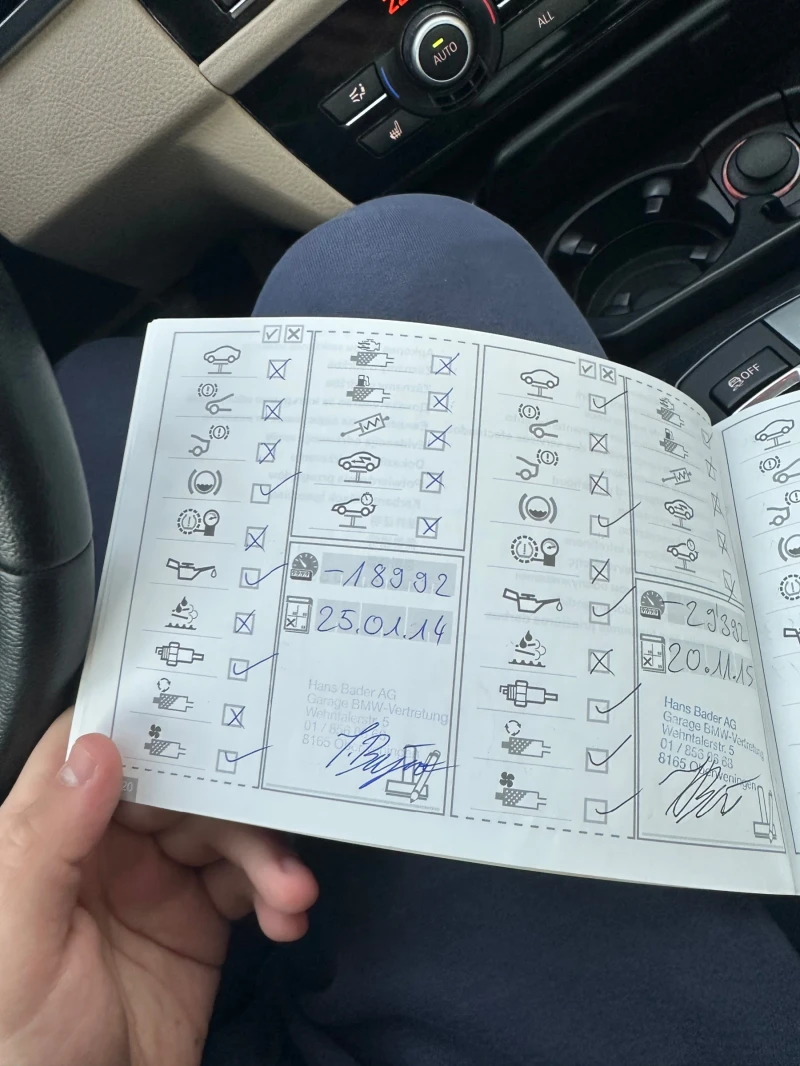 AUTO
ALL
OFF
-18992
25.01.14
Hans Bader AG
Garage BMW-Vertretung
Wehntalerstr. 5
8165
20
-29392
20.11.15
Hans Bader AG
Garage BMW-Vertretung
Wehntalerstr. 5
01 / 856
8165 Oberweningen